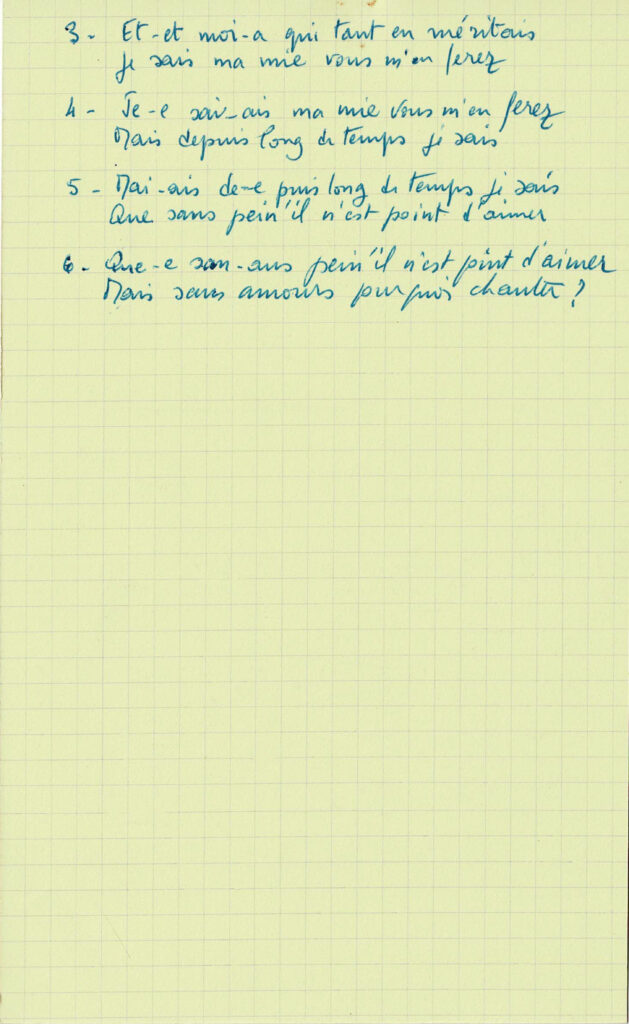 3 - Et-et moi-a qui tant en méritais
je sais ma mie vous m'en ferez
4 - Je-e sai-ais ma mie vous m'en ferez
Mais depuis long de temps je sais
5 - Mai-ais de-e puis long de temps je sais
Que sans pein' il n'est point d'aimer
6 - Que-e san-ans pein' il n'est point d'aimer
Mais sans amours pourquoi chanter ?